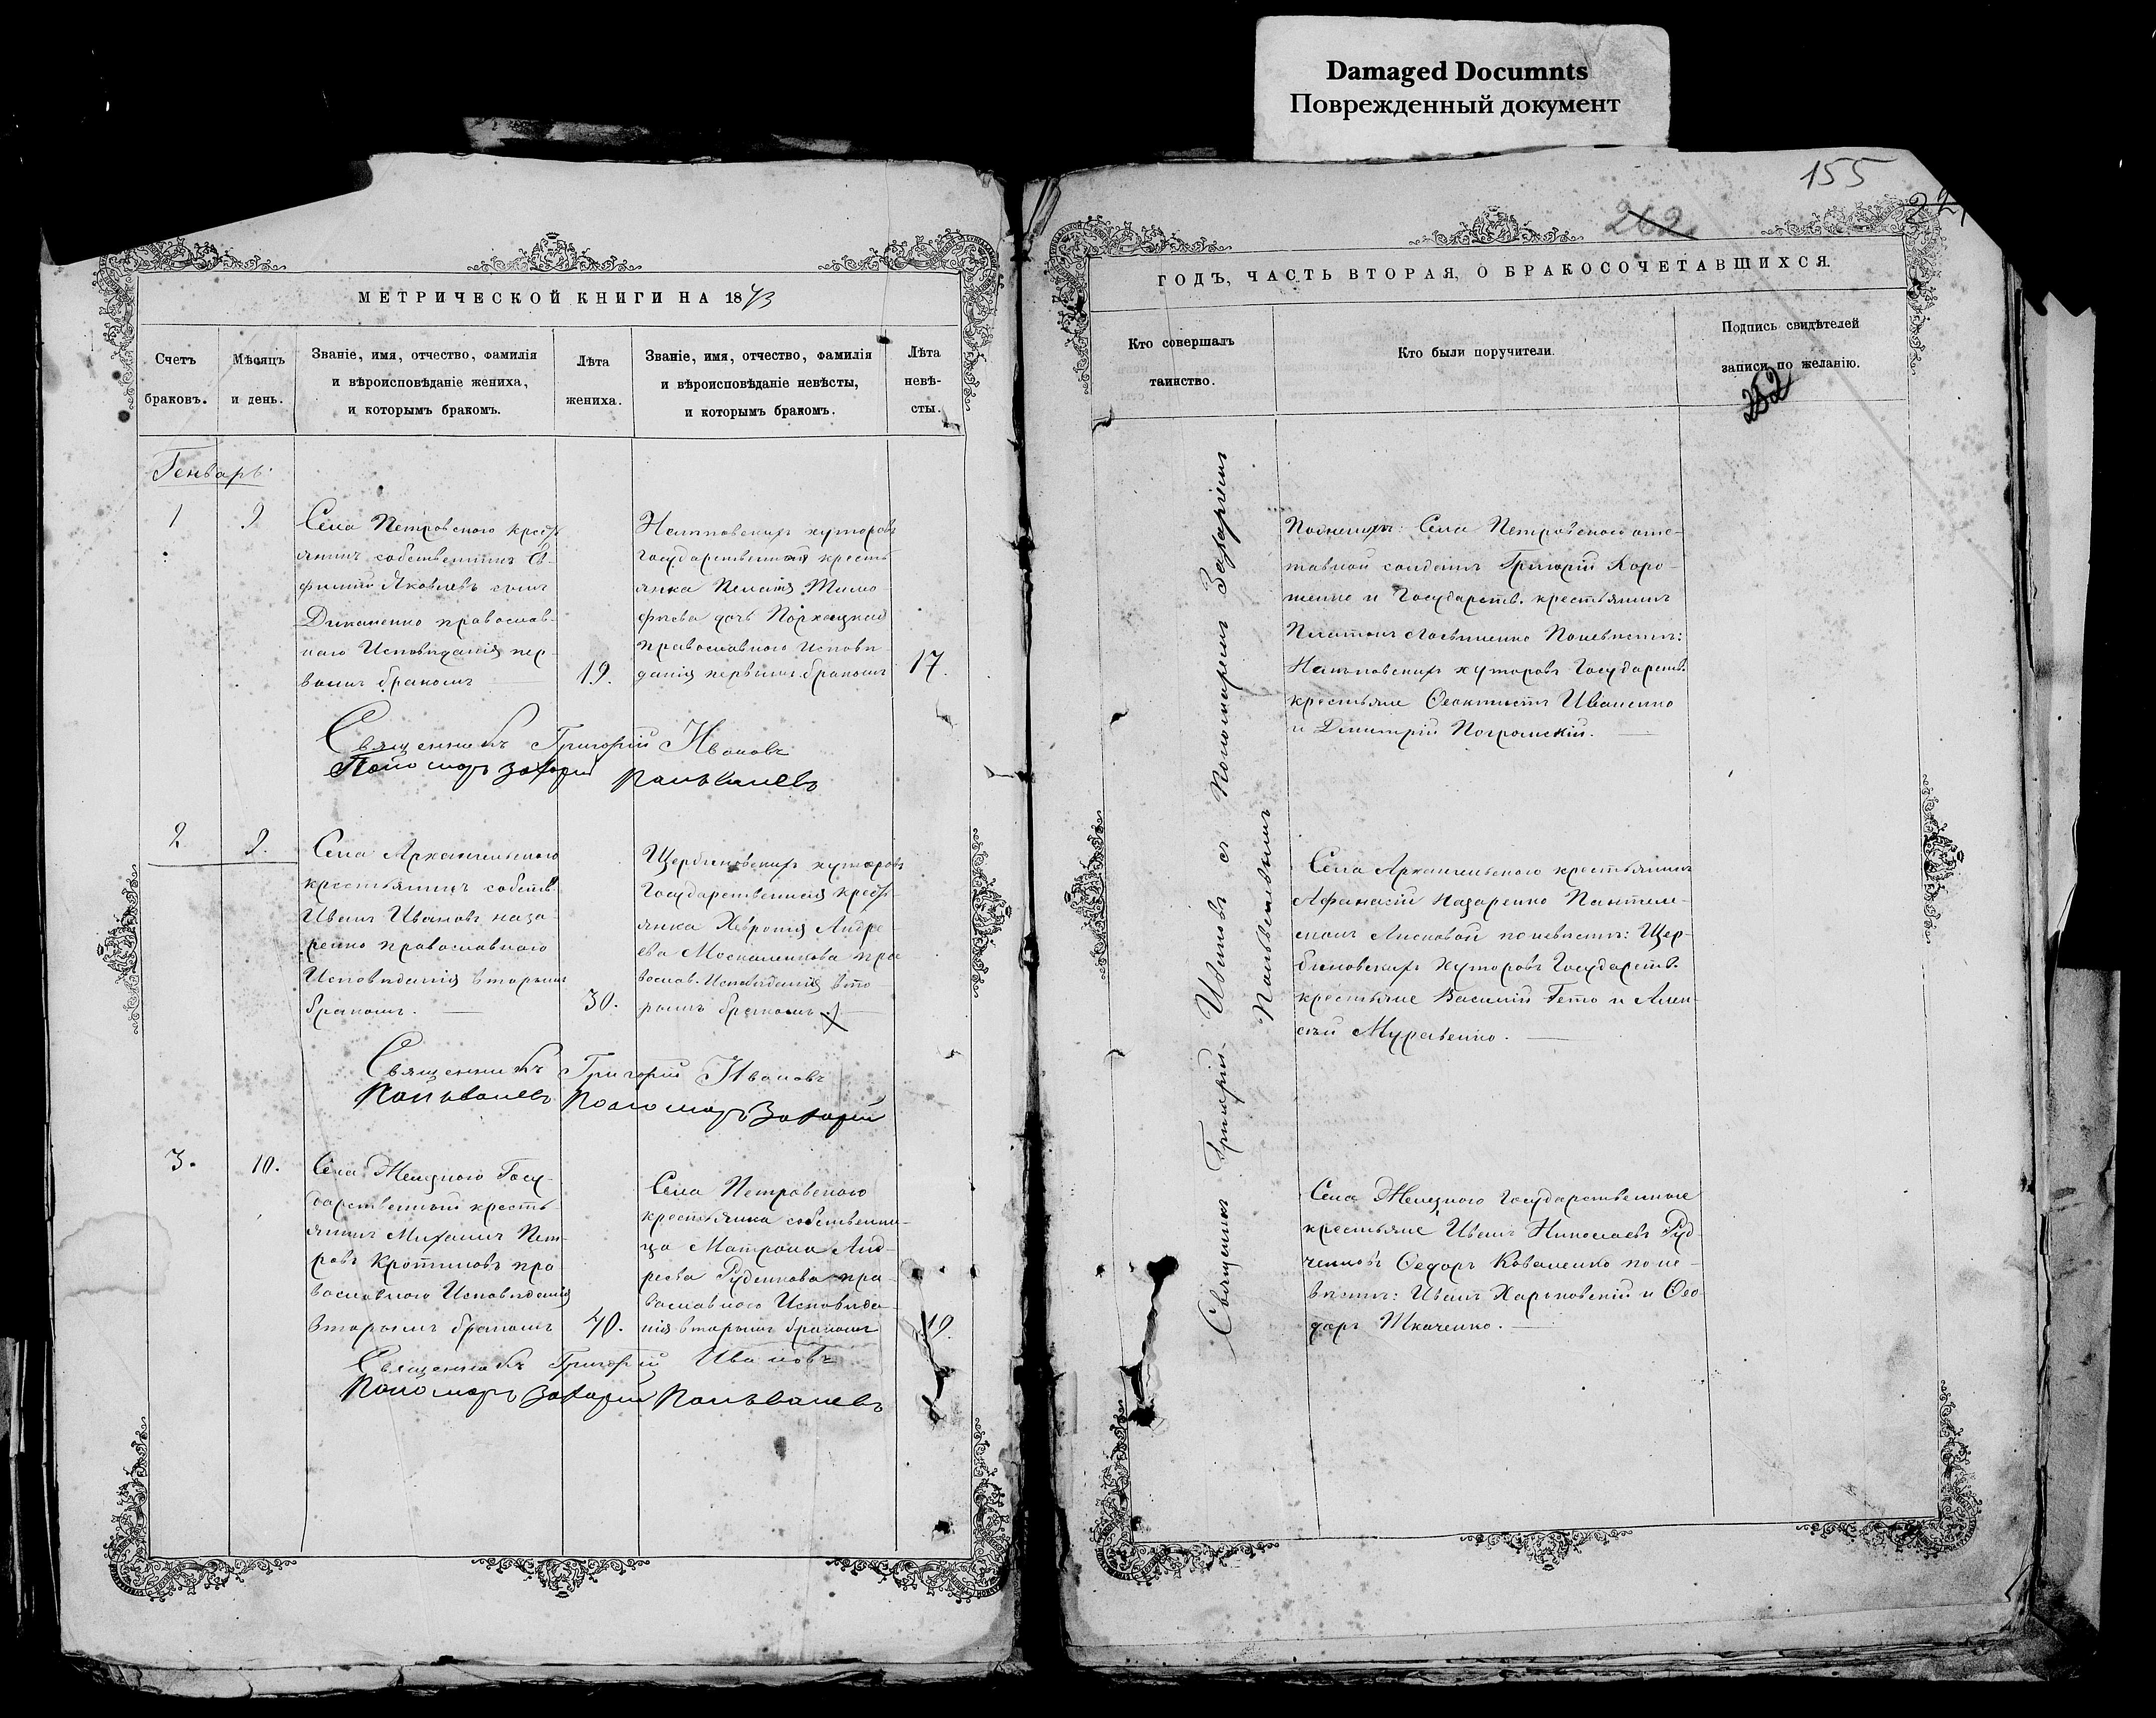 Damaged Documnts
Поврежденный документ
МЕТРИЧЕСКОЙ КНИГИ НА 1873
Счетъ браковъ.
Мѣсяцъ и день.
Званіе, имя, отчество, фамилія
и вѣроисповѣданіе жениха,
и которымъ бракомъ.
Лѣта
жениха.
Званіе, имя, отчество, фамилія
и вѣроисповѣданіе невѣсты,
и которымъ бракомъ.
Лѣта
невѣ-
сты.
Генварь
1
9
Села Петровского кресть
янинъ собственникъ Ев-
фимій Яковлевъ сынъ
Дикаченко православ-
наго Исповѣданія пер
вымъ бракомъ
19.
хуторовъ
Государственная кресть
янка Пелагія Тимо
фѣева дочь
православного исповѣ
данія первымъ бракомъ
17.
Священникъ Григорій Ивановъ
Пономарь Захарій
2
9.
Села Архангельского
крестьянинъ собств
Иванъ Ивановъ наза
ренко православного
Исповѣданія вторымъ
бракомъ.
30.
Щербиновскихъ хуторовъ
Государственная кресть-
янка Хевронія Андре
ева Москаленкова пра
вослав. Исповѣданія вто
рымъ бракомъ
Священникъ Григорій Ивановъ
Пономарь Захарій
3.
10.
Села Желѣзного Госу-
дарственный кресть-
янинъ Михаилъ Пет-
ровъ Кротиновъ пра
вославного Исповѣданія
вторымъ бракомъ
40.
Села Петровского
крестьянка собственни-
ца Матрона Анд-
реева Руденкова пра-
вославного Исповѣда-
нія вторымъ бракомъ
19.
Священникъ Григорій Ивановъ
Пономарь Захарій
155
262
ГОДЪ, ЧАСТЬ ВТОРАЯ, О БРАКОСОЧЕТАВШИХСЯ.
Кто совершалъ
таинство.
Кто были поручители.
Подпись свидѣтелей
записи по желанію.
252
Священникъ Григорій Ивановъ съ Пономаремъ Захаріемъ
Села Петровского отс-
тавной солдатъ Григорій Коро-
и Государств. крестьянинъ
Платонъ Поневѣстѣ:
хуторовъ Государств.
крестьяне Феоктистъ Иваненко
и Димитрій Погромскій.
Села Архангельского крестьянинъ
Афанасій Назаренко Пантеле-
по невѣстѣ: Щер-
биновскихъ хуторовъ Государств.
крестьяне Василій Гето и Алек-
сѣй Муравенко.
Села Желѣзного Государственные
крестьяне Иванъ Николаевъ Руд
ченковъ Федоръ Коваленко по не-
вѣстѣ: Иванъ Харьковскій и Фео
доръ Ткаченко.